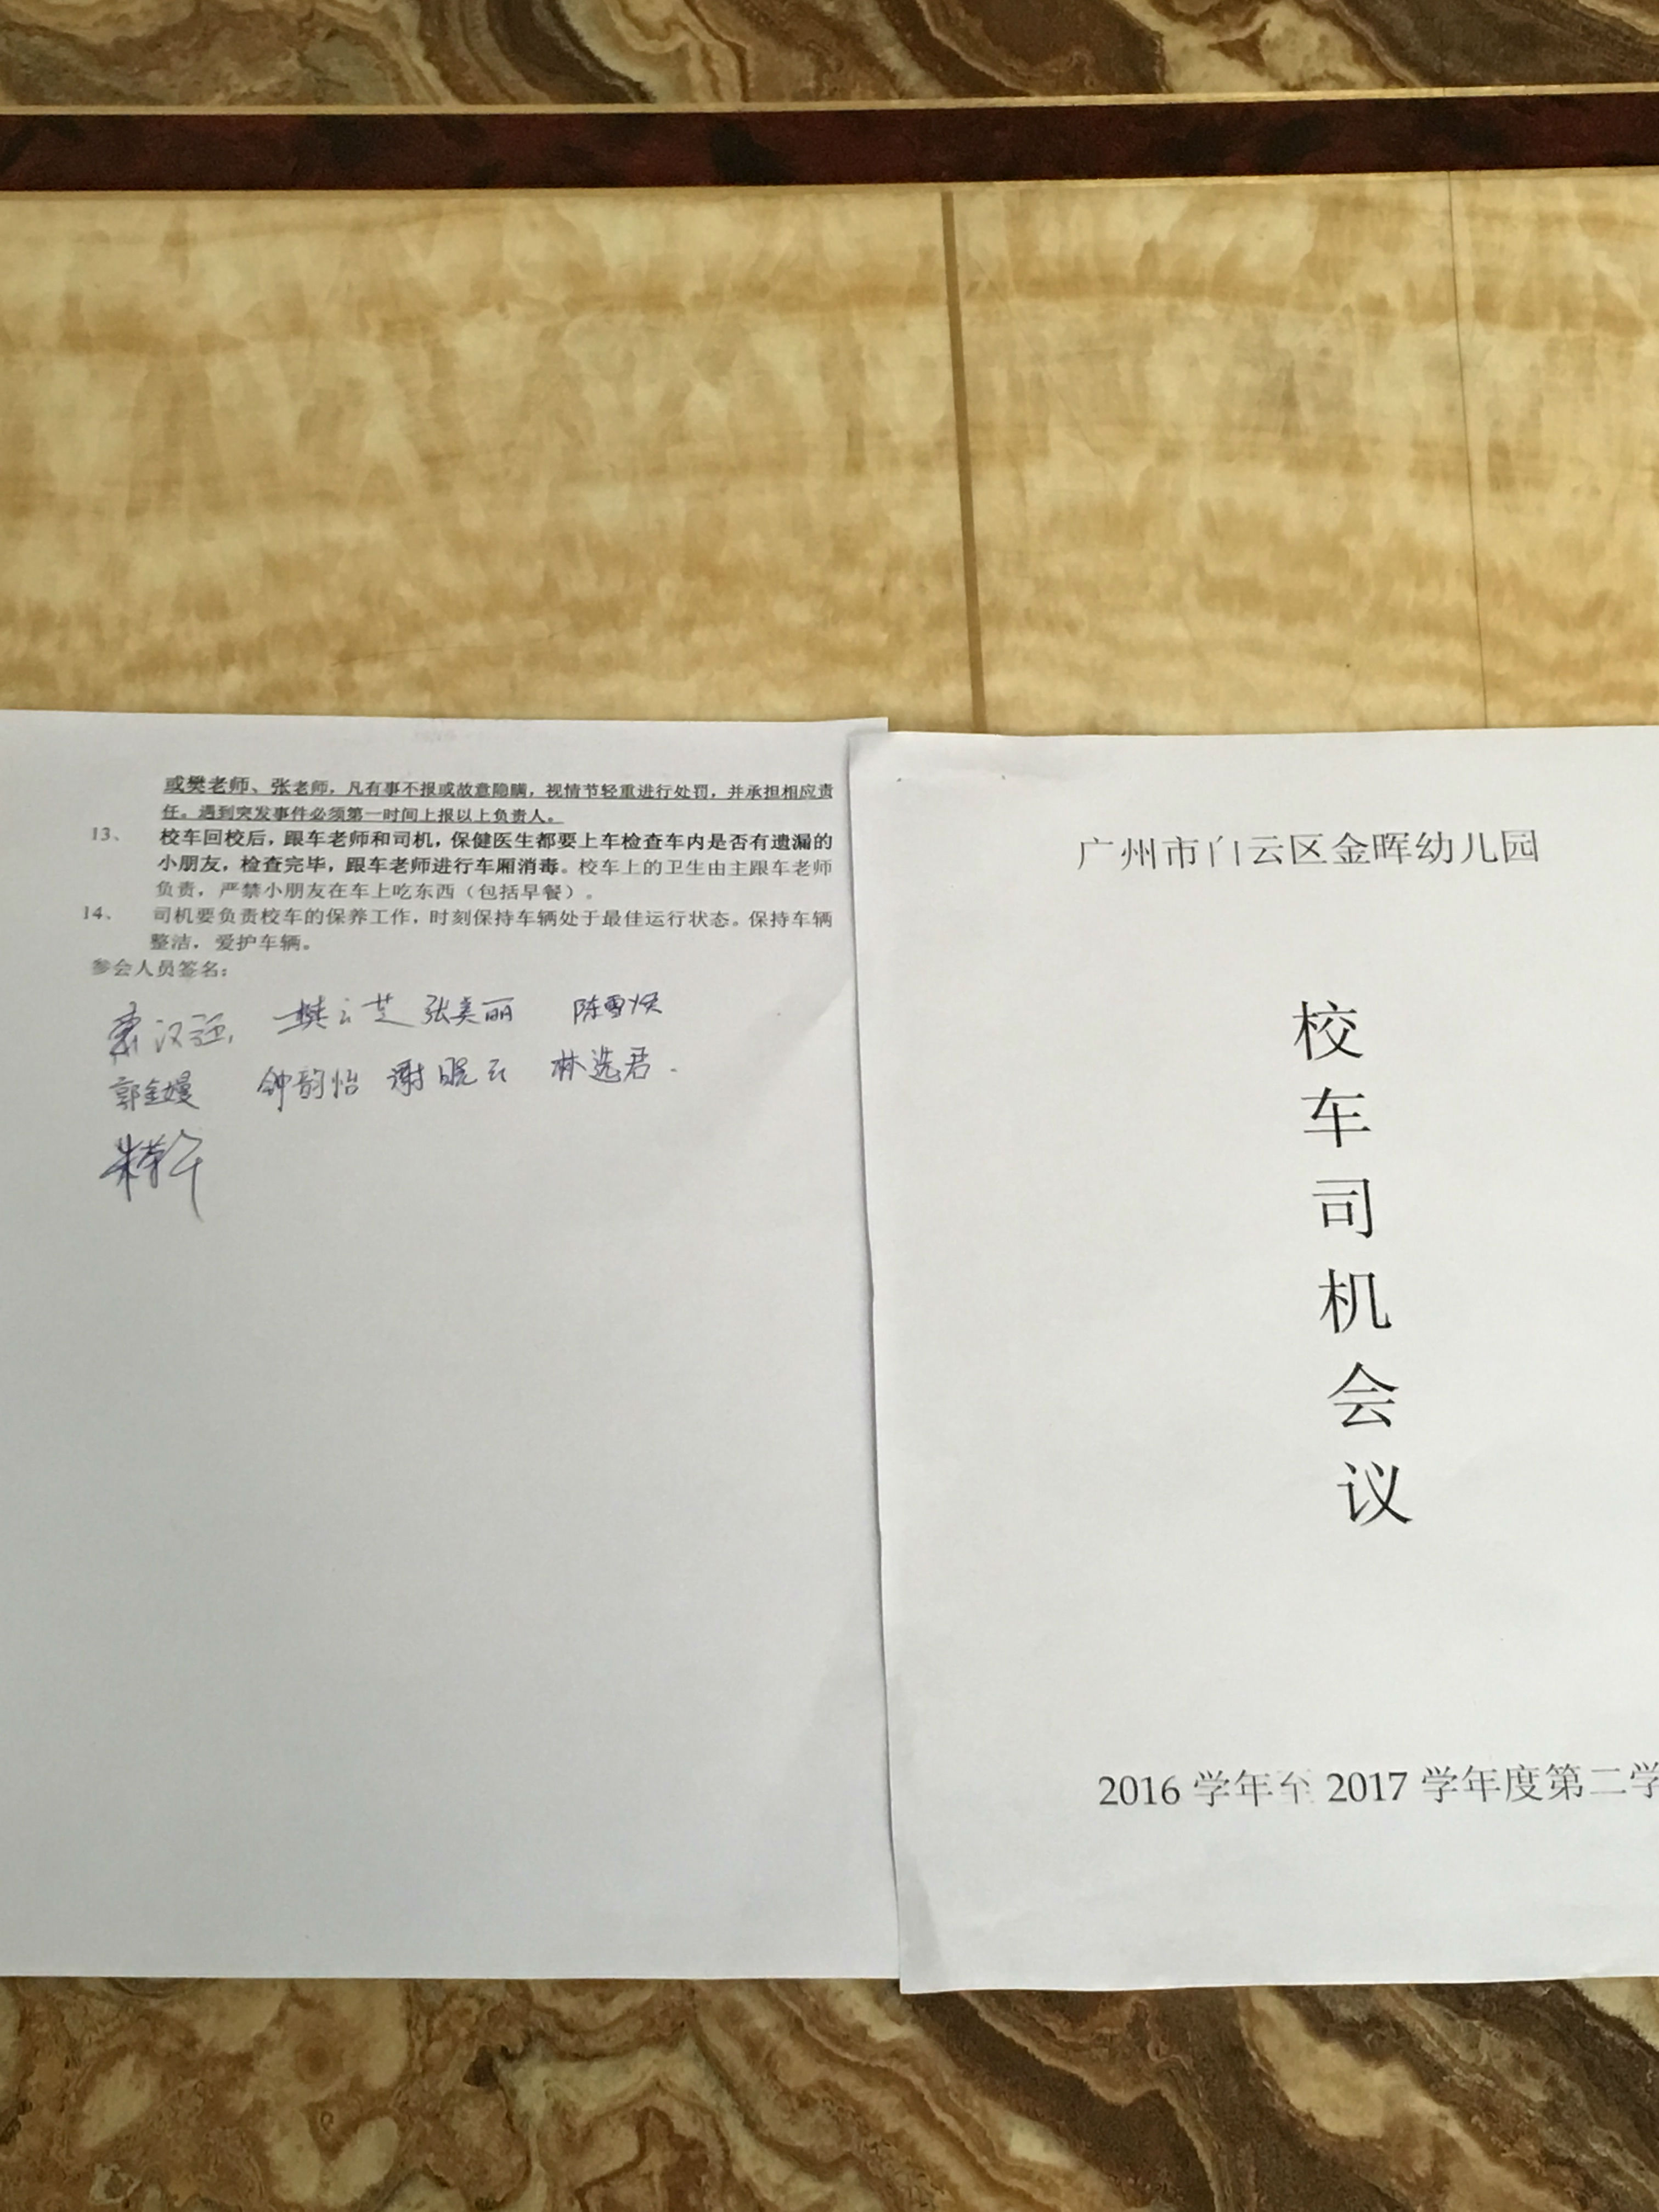 或樊老师、张老师，凡有事不报或故意隐瞒，视情节轻重进行处罚，并承担相应责
任。遇到突发事件必须第一时间上报以上负责人。
13、 校车回校后，跟车老师和司机，保健医生都要上车检查车内是否有遗漏的
小朋友，检查完毕，跟车老师进行车厢消毒。校车上的卫生由主跟车老师
负责，严禁小朋友在车上吃东西（包括早餐）。
14、 司机要负责校车的保养工作，时刻保持车辆处于最佳运行状态。保持车辆
整洁，爱护车辆。
参会人员签名：
樊云芝 张美丽
郭金嫚 钟韵怡 谢晓云 林选君.
广州市白云区金晖幼儿园
校
车
司
机
会
议
2016 学年至 2017 学年度第二学